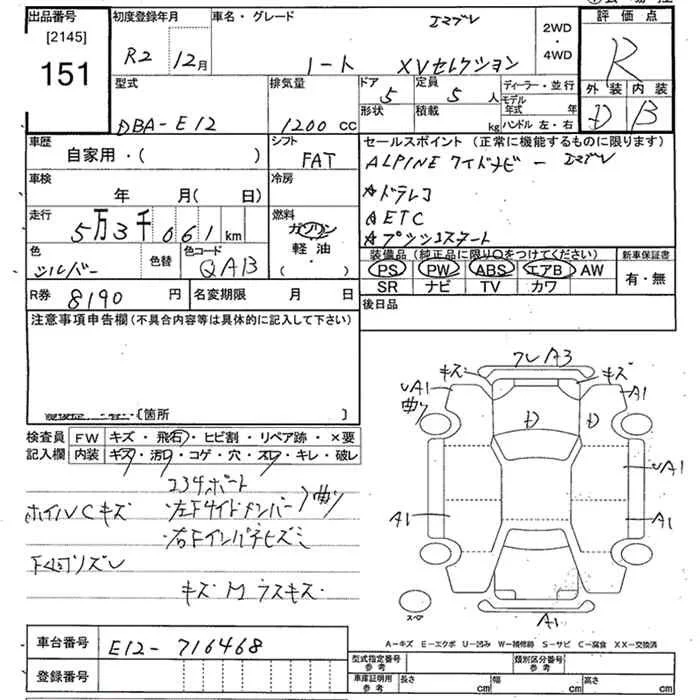 出品番号 初度登録年月 車名・グレード エマブレ 2WD・4WD 評価点
[2145]
151
R2 12月 ノート XVセレクション R
型式 排気量 ドア 定員 ディーラー・並行 外装 内装
DBA-E12 1200 CC 5 5 人 モデル年式 年 D B
形状 積載 kg ハンドル 左・右
車歴 シフト セールスポイント (正常に機能するものに限ります)
自家用・( ) FAT ALPINE ワイドナビ ー エマブレ
車検 冷房
年 月(日) ☆ドラレコ
走行 燃料 ☆ETC
5万3千061 km ガソリン ☆プッシュスタート
軽・油
( )
色 色替 色コード 装備品 (純正品に限り○をつけてください) 新車保証書
シルバー QAB PS PW ABS エアB AW 有・無
SR ナビ TV カワ
R券 8190 円 名変期限 月 日 後日品
注意事項申告欄(不具合内容等は具体的に記入して下さい)
[箇所 ]
フレA3
キズ キズ
UA1 A1
曲り
D D
UA1
A1 A1
A1
スペア
検査員 FW キズ・飛石・ヒビ割・リペア跡・×要
記入欄 内装 キズ・汚レ・コゲ・穴・スレ・キレ・破レ
ホイルCキズ
・左Fサイドメンバー 曲り
・右Fインパネヒズミ
A-キズ E-エクボ U-凹み W-補修跡 S-サビ C-腐食 XX-交換済
車台番号 E12-716468
型式指定番号 参考 類別区分番号 参考
登録番号
車庫証明用 参考 長さ cm 幅 cm 高さ cm